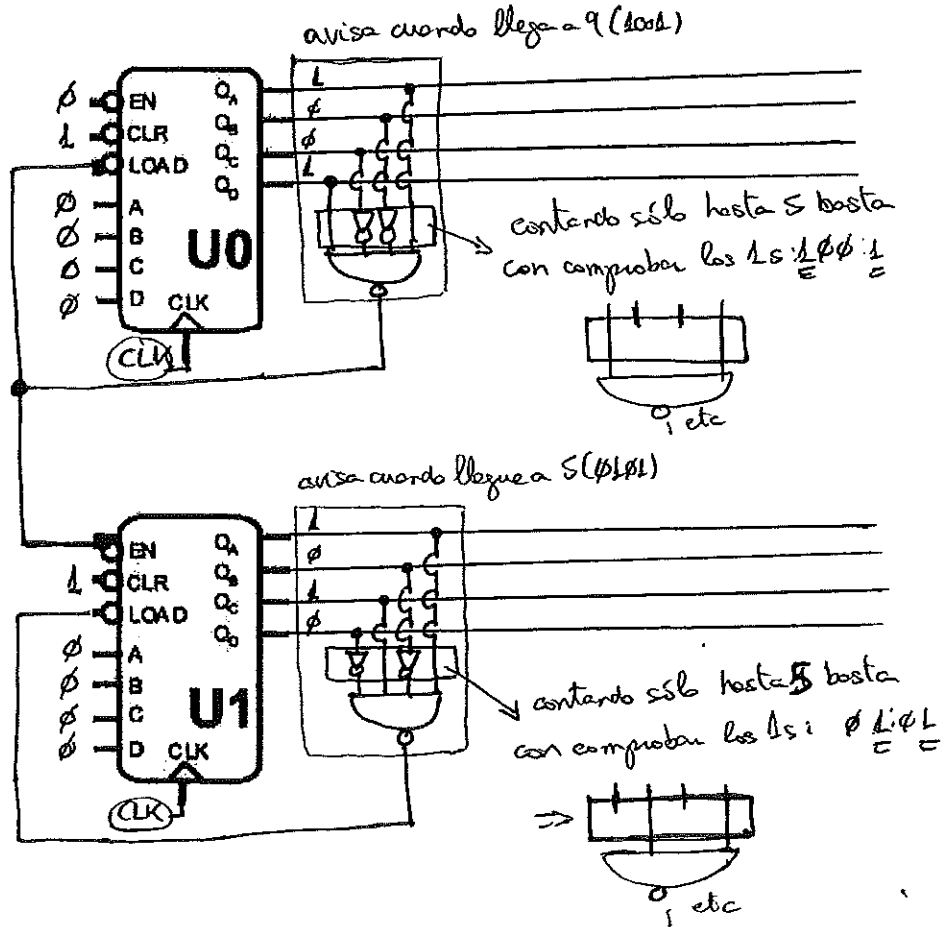 avisa cuando llega a 9 (1001)
Ø EN QA 1
1 CLR QB Ø
LOAD QC Ø
QD 1
Ø A
Ø B
Ø C
Ø D
U0
CLK
CLK
contando sólo hasta 5 basta
con comprobar los 1s: 1ØØ1
, etc
avisa cuando llegue a 5 (Ø1Ø1)
EN QA 1
1 CLR QB Ø
LOAD QC 1
QD Ø
Ø A
Ø B
Ø C
Ø D
U1
CLK
CLK
contando sólo hasta 5 basta
con comprobar los 1s: Ø1Ø1
⇒
, etc